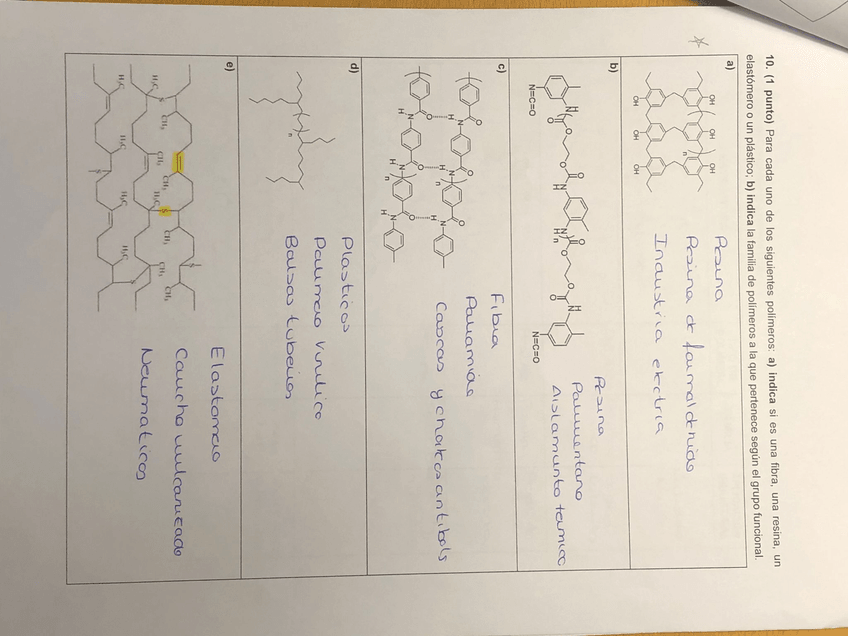 10. (1 punto) Para cada uno de los siguientes polímeros: a) indica si es una fibra, una resina, un
elastómero o un plástico; b) indica la familia de polímeros a la que pertenece según el grupo funcional.
a)
OH OH OH
n
OH OH OH
Resina
Resina de formaldehido
Industria electria
b)
N=C=O
H
N
O
O
O
O
N
H
N
H
O
n
O
O
O
H
N
N=C=O
Resina
Poliuretano
Aislamiento termico
c)
O
N
H
O
N
H
O
N
H
n
O
H
N
O
H
N
O
H
N
n
Fibra
Poliamidas
Cascos y chalecos antibals
d)
n
Plasticos
Polimero vinilico
Bolsas tuberias
e)
H₃C
H₃C
H₃C
H₃C
S
CH₃
CH₃
CH₃
H₃C
S
CH₃
CH₃
CH₃
S
S
S
Elastomero
Caucho vulcanizado
Neumaticos